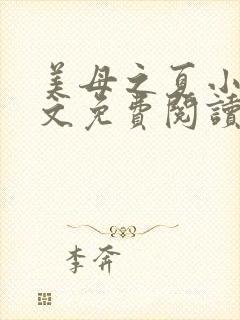 美母之夏小
文免費閱讀
李奔